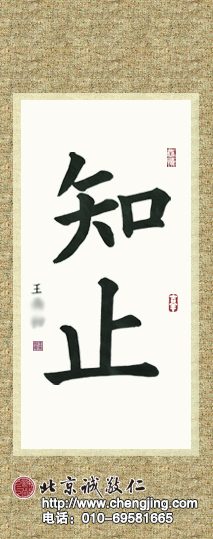 知止
王
北京诚敬仁
http://www.chengjing.com
电话：010-69581665